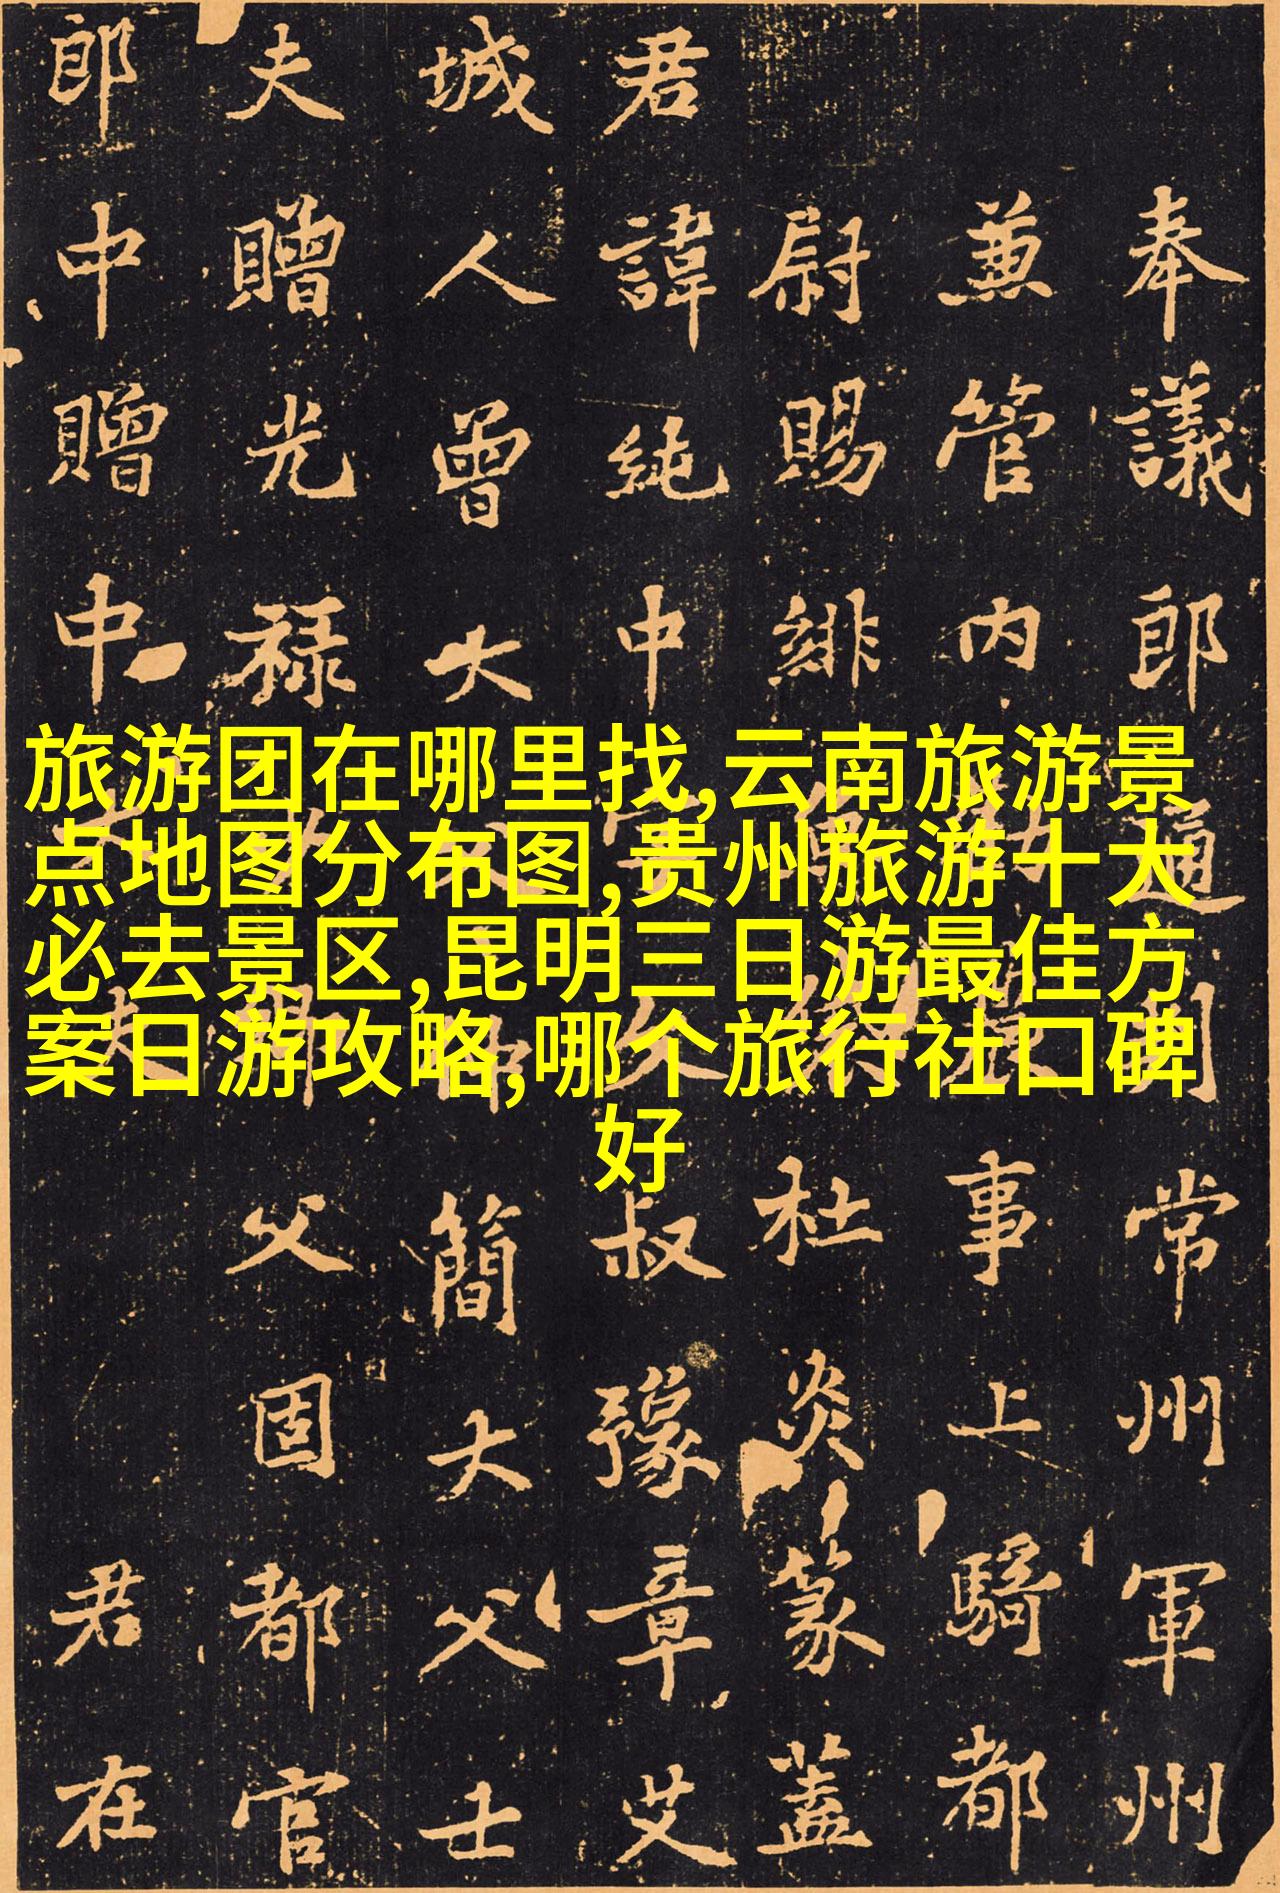 奉議郎通常州軍州
兼管内事上騎都
尉賜緋杜炎篆蓋
君諱純中叔豫章艾
城人曾大簡大父士
夫贈光祿父固都官
郎中贈中君在
旅游团在哪里找,云南旅游景
点地图分布图,贵州旅游十大
必去景区,昆明三日游最佳方
案日游攻略,哪个旅行社口碑
好